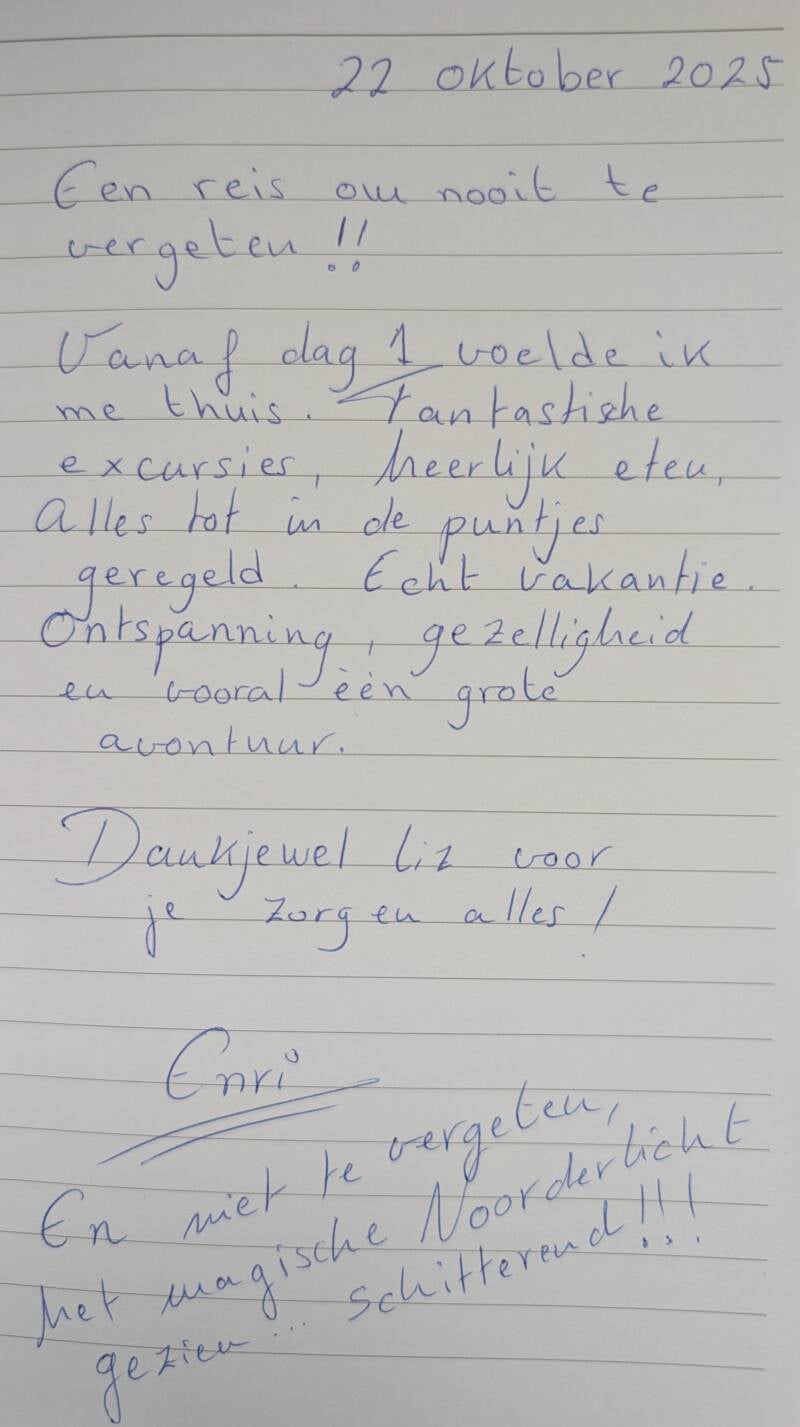 22 oktober 2025
Een reis om nooit te
vergeten!!
Vanaf dag 1 voelde ik
me thuis. Fantastische
excursies, heerlijk eten,
Alles tot in de puntjes
geregeld. Echt vakantie.
Ontspanning, gezelligheid
en vooral één grote
avontuur.
Dankjewel Liz voor
je zorg en alles!
Enri
En niet te vergeten,
het magische Noorderlicht
gezien... schitterend!!!